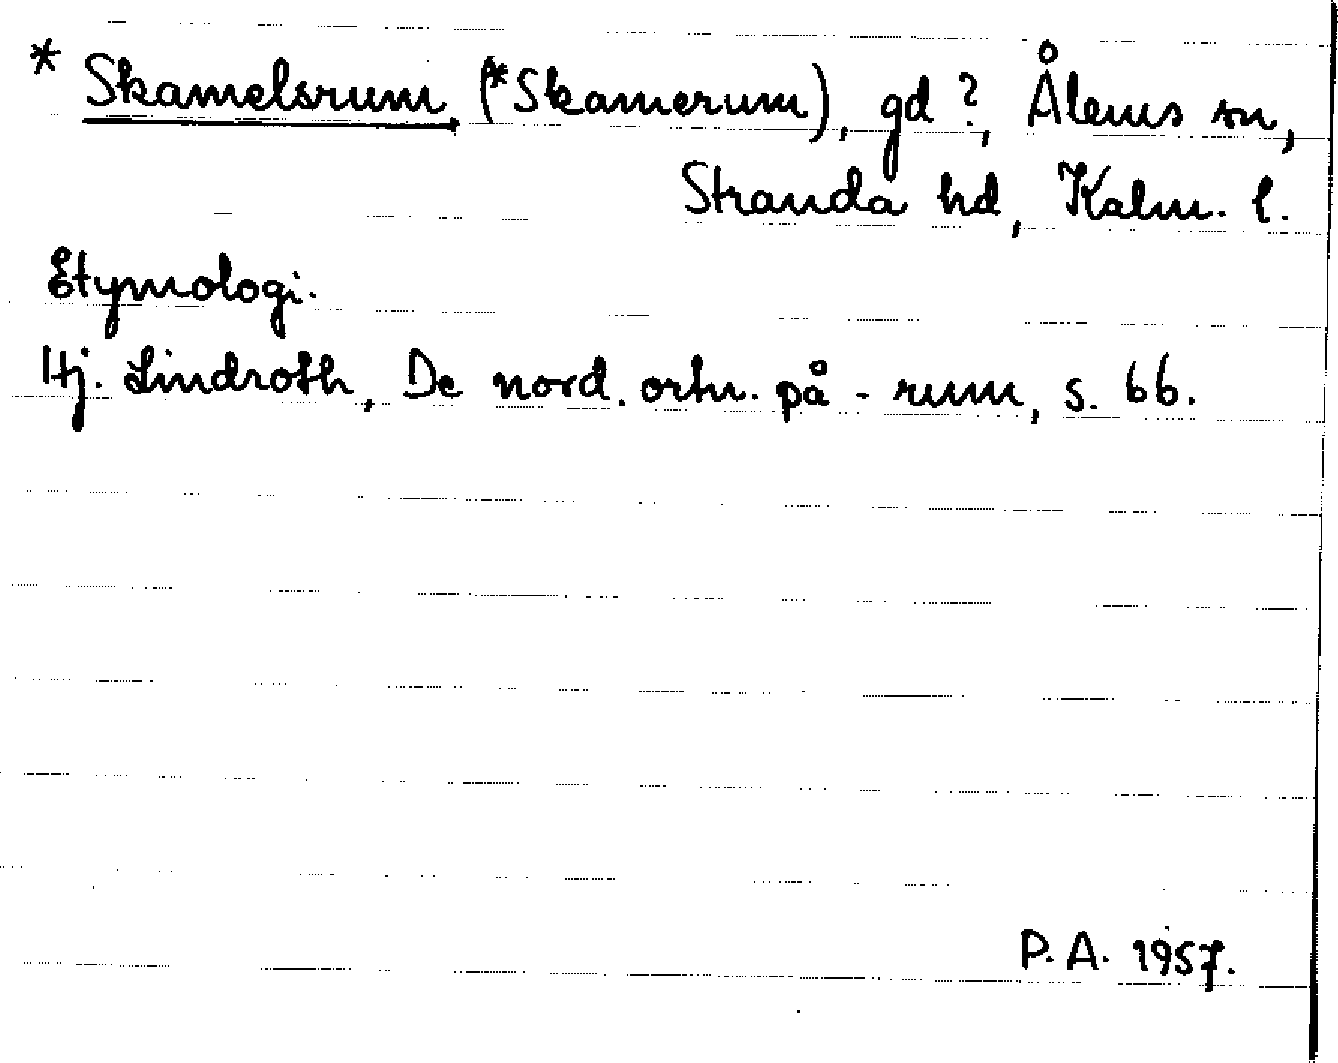 * Skamelsrum (*Skamerum), gd?, Ålems sn,
Stranda hd, Kalm. l.
Etymologi.
Hj. Lindroth, De nord. ortn. på -rum, s. 66.
P.A. 1957.